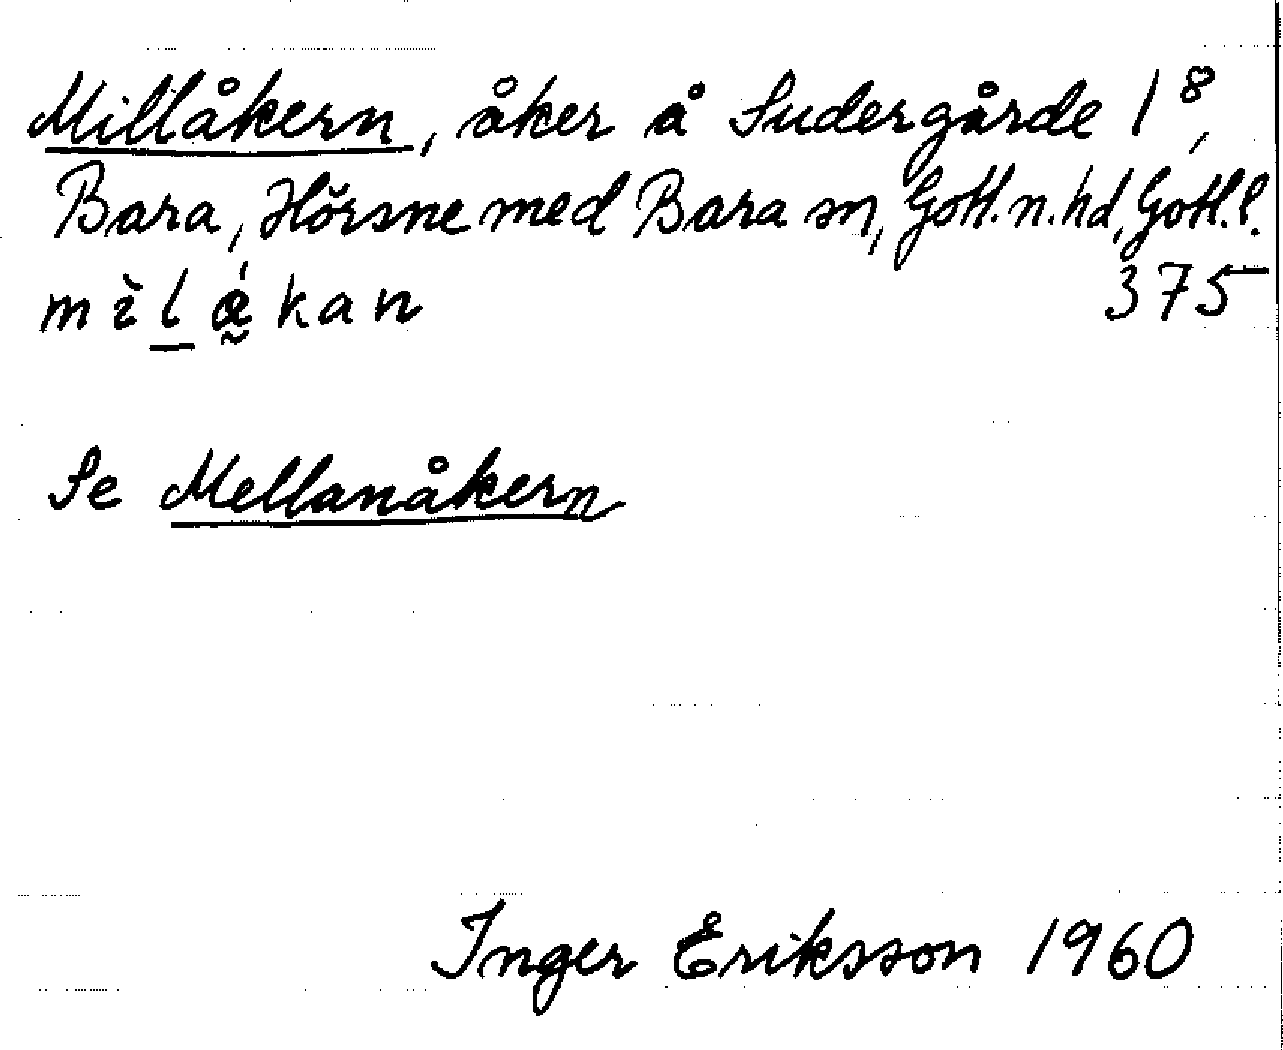 Millåkern, åker å Sudergårde 1⁸,
Bara, Hörsne med Bara sn, Gotl. n. hd, Gotl. l.
m ì l á̰ k a n 375
Se Mellanåkern
Inger Eriksson 1960